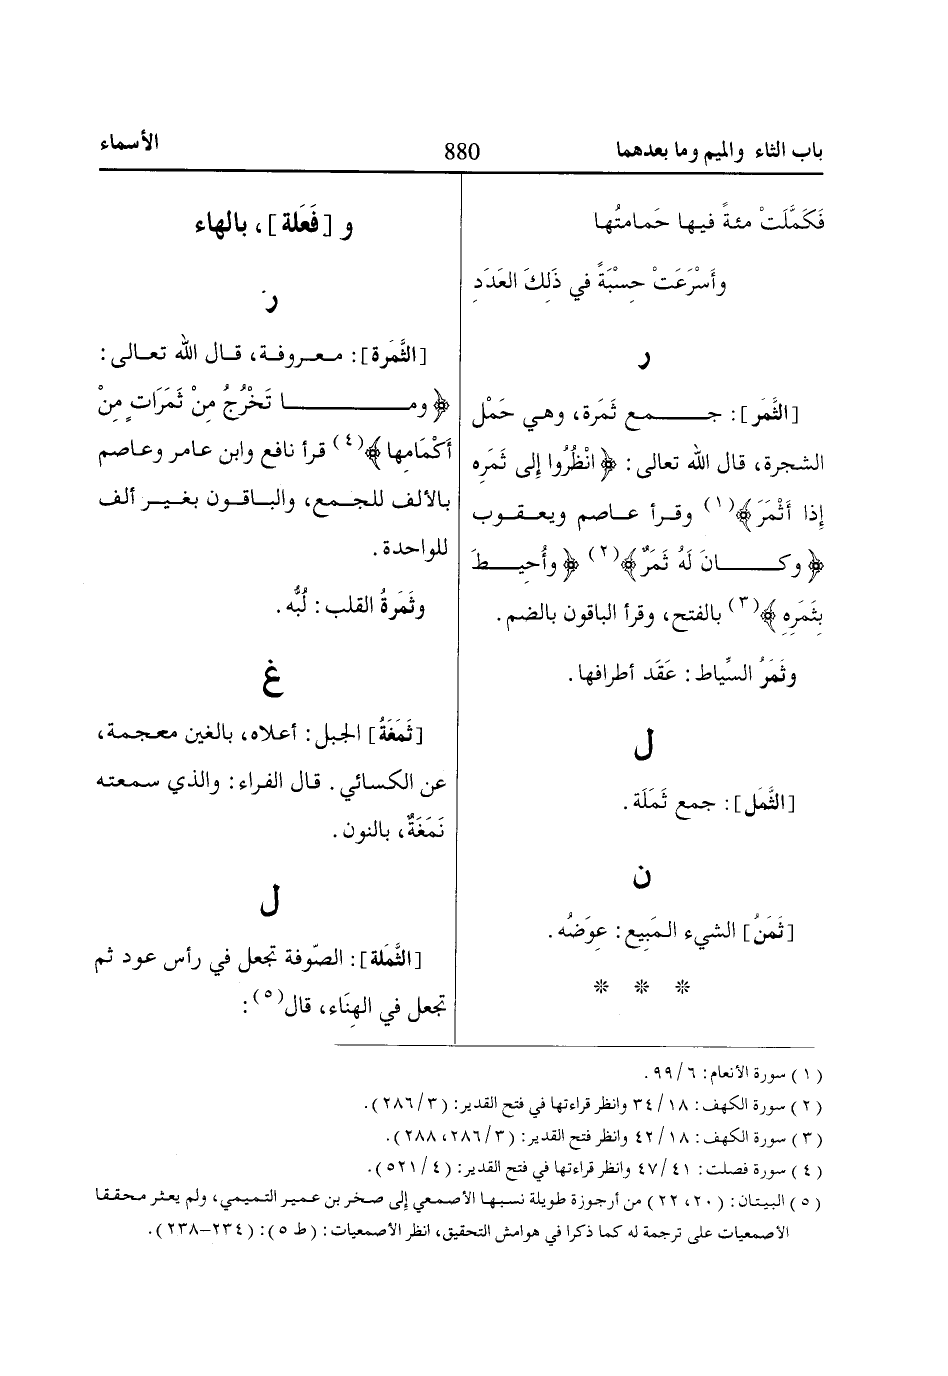 باب الثاء والميم وما بعدهما 880 الأسماء
فَكَمَّلَتْ مئةً فيها حَمامتُها
وأَسْرَعَتْ حِسْبَةً في ذَلِكَ العَدَدِ
ر
[الثَّمَر]: جمع ثَمَرة، وهي حَمْل
الشجرة، قال الله تعالى: ﴿انْظُرُوا إلى ثَمَرِه
إذا أَثْمَرَ﴾(١) وقرأ عاصم ويعقوب
﴿وكانَ لَهُ ثَمَرٌ﴾(٢) ﴿وأُحيطَ
بِثَمَرِه﴾(٣) بالفتح، وقرأ الباقون بالضم.
وثَمَرُ السِّياط: عَقَد أطرافها.
ل
[الثَّمَل]: جمع ثَمَلَة.
ن
[ثَمَنُ] الشيء المَبِيع: عِوَضُه.
* * *
و [فَعَلة]، بالهاء
ر
[الثَّمَرة]: معروفة، قال الله تعالى:
﴿وما تَخْرُجُ مِنْ ثَمَرَاتٍ مِنْ
أَكْمَامِها﴾(٤) قرأ نافع وابن عامر وعاصم
بالألف للجمع، والباقون بغير ألف
للواحدة.
وثَمَرةُ القلب: لُبُّه.
غ
[ثَمَغَةُ] الجبل: أعلاه، بالغين معجمة،
عن الكسائي. قال الفراء: والذي سمعته
نَمَغَةٌ، بالنون.
ل
[الثَّمَلة]: الصّوفة تجعل في رأس عود ثم
تجعل في الهِنَاء، قال(٥):
(١) سورة الأنعام: ٦/ ٩٩.
(٢) سورة الكهف: ١٨/ ٣٤ وانظر قراءتها في فتح القدير: (٣/ ٢٨٦).
(٣) سورة الكهف: ١٨/ ٤٢ وانظر فتح القدير: (٣/ ٢٨٦، ٢٨٨).
(٤) سورة فصلت: ٤١/ ٤٧ وانظر قراءتها في فتح القدير: (٤/ ٥٢١).
(٥) البيتان: (٢٠، ٢٢) من أرجوزة طويلة نسبها الأصمعي إلى صخر بن عمير التميمي، ولم يعثر محققا
الأصمعيات على ترجمة له كما ذكرا في هوامش التحقيق، انظر الأصمعيات: (ط ٥): (٢٣٤-٢٣٨).